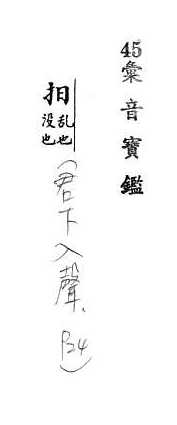 45彙音寶鑑
抇
乱也
没也
(君下入聲、P24)